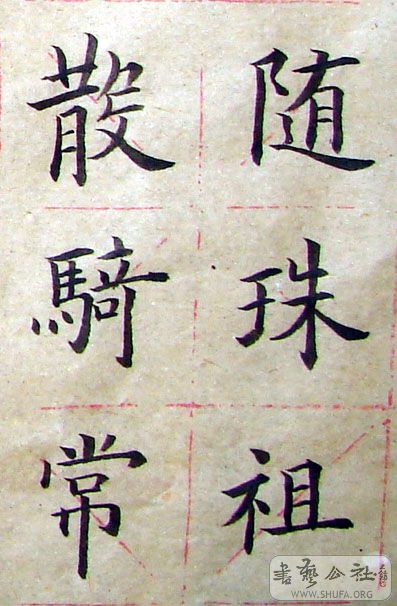 随珠祖
散騎常
書藝公社
WWW.SHUFA.ORG